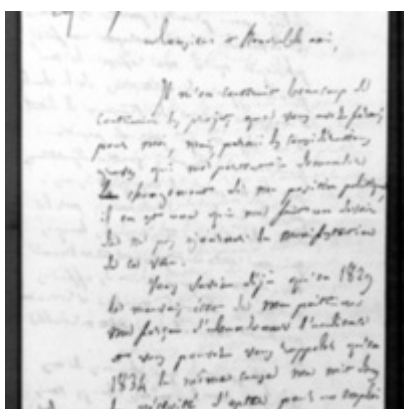 Monsieur et honorable ami,
Il m'en coûterait beaucoup de
combattre les projets que vous avez formés
pour moi, mais parmi les considérations
graves qui me portent à demander
le changement de ma position politique
il en est une qui me fait un devoir
de ne pas ajourner la manifestation
de ce vœu.
Vous savez déjà qu'en 1829
le mauvais état de ma poitrine
me força d'abandonner l'audience
et vous pouvez vous rappeler qu'en
1834 la même cause me mit dans
la nécessité d'opter pour un emploi